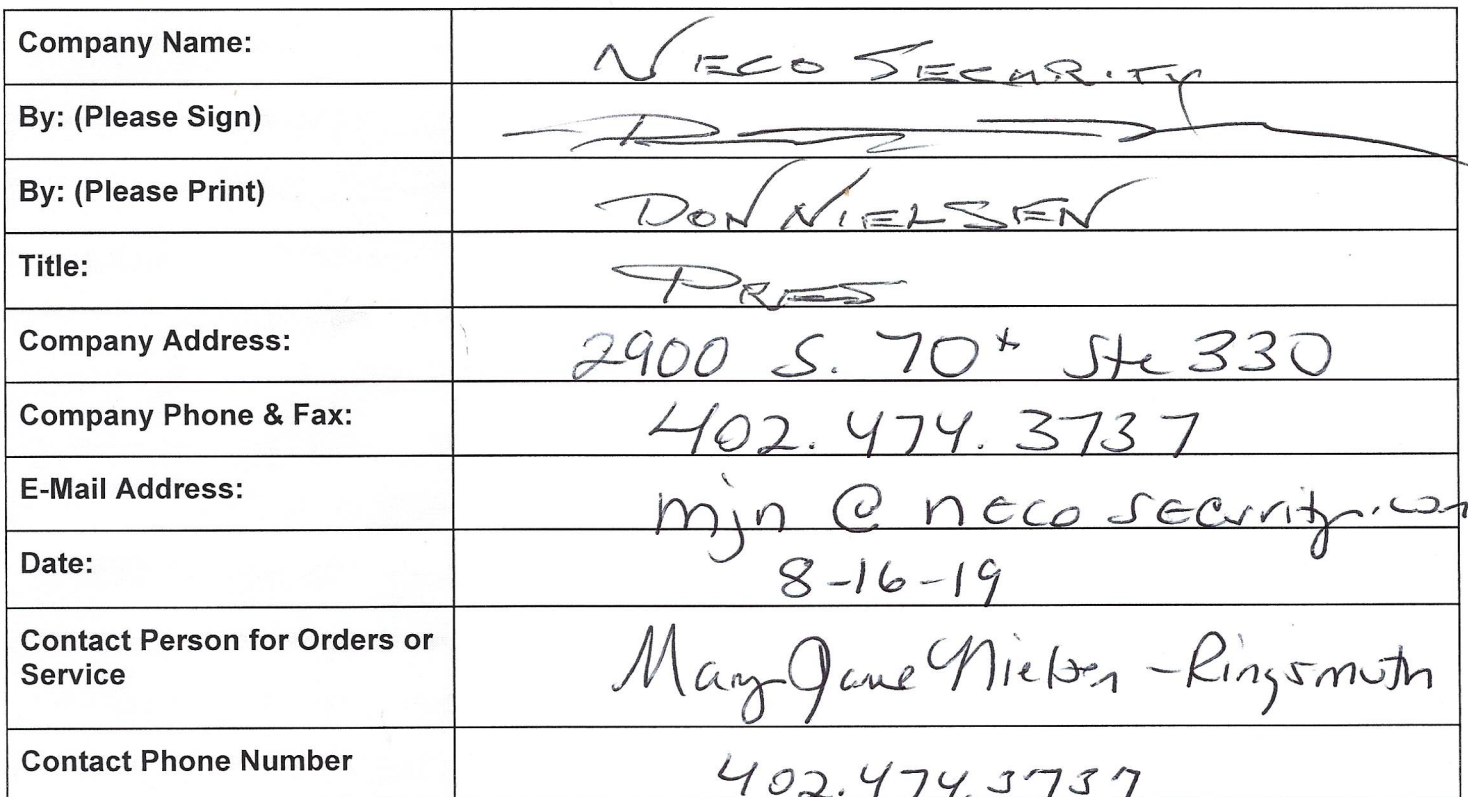 Company Name: NECO SECURITY
By: (Please Sign)
By: (Please Print) DON NIELSEN
Title: PRES
Company Address: 2900 S. 70th Ste 330
Company Phone & Fax: 402.474.3737
E-Mail Address: mjn @ neco security.com
Date: 8-16-19
Contact Person for Orders or
Service Mary Jane Nielsen - Ringsmuth
Contact Phone Number 402.474.3737